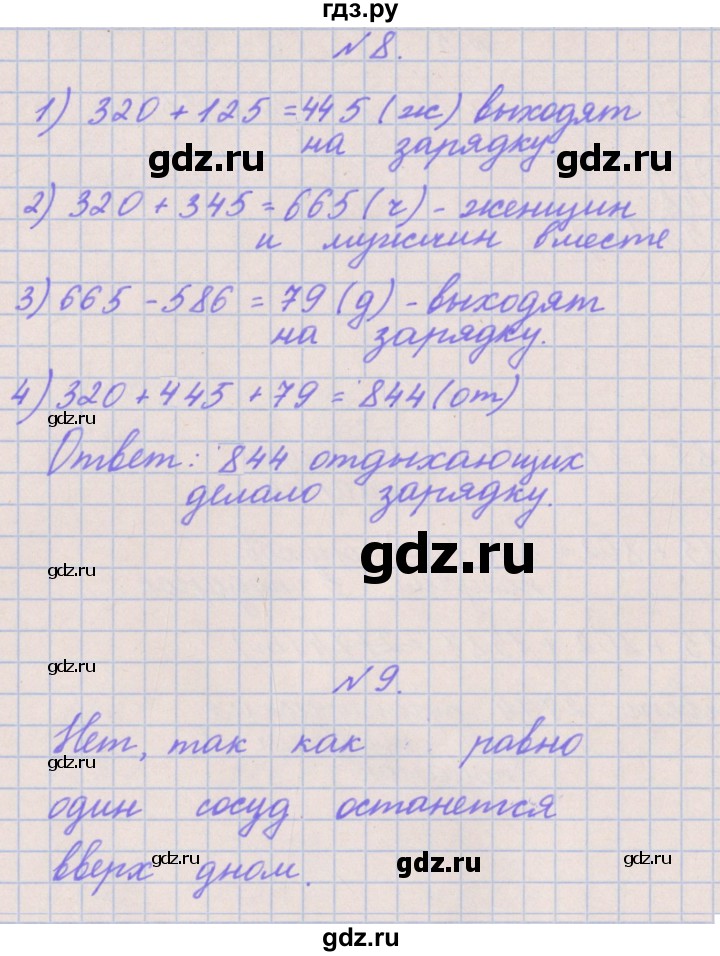 гдз.ру
№ 8.
1) 320 + 125 = 445 (ж) выходят
на зарядку.
gdz.ru gdz.ru
2) 320 + 345 = 665 (ч) - женщин
и мужчин вместе
3) 665 - 586 = 79 (д) - выходят
на зарядку.
4) 320 + 445 + 79 = 844 (от)
gdz.ru
Ответ: 844 отдыхающих
делало зарядку.
gdz.ru
gdz.ru
gdz.ru
№ 9.
Нет, так как равно
gdz.ru
один сосуд останется
вверх дном.
gdz.ru gdz.ru gdz.ru
gdz.ru